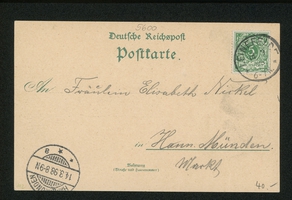 5600
Deutsche Reichspost
Postkarte.
An Fräulein Elisabeth Nickel
in Hann. Münden
Markt
Wohnung
(Straße und Hausnummer)
14.3.98.8-9N
40.-